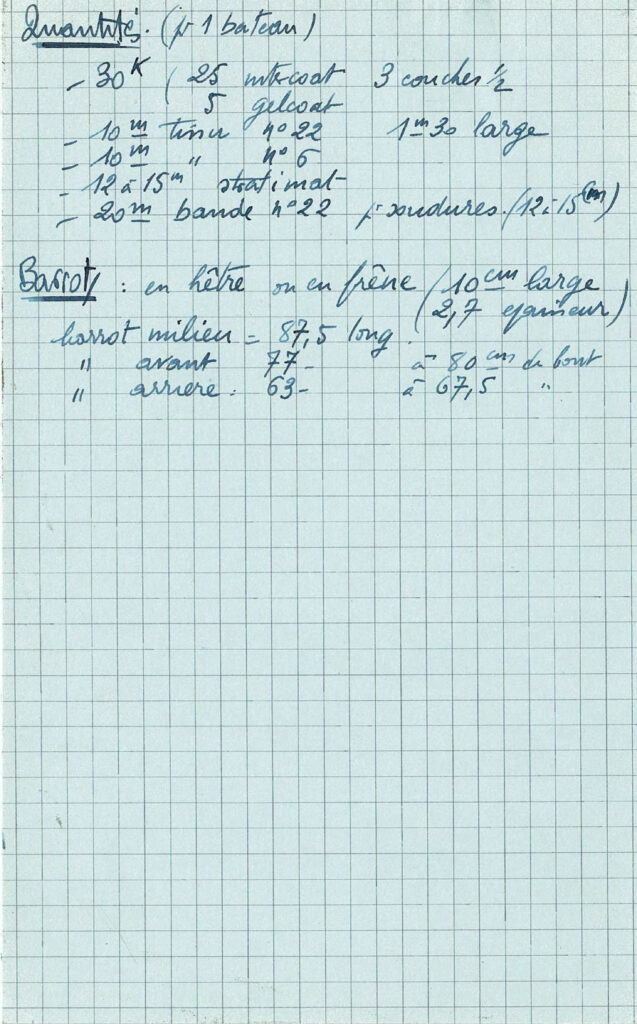 Quantités. (pr 1 bateau)
- 30K ( 25 intercoat 3 couches 1/2
5 gelcoat
- 10m tissu n° 22 1m30 large
- 10m " n° 6
- 12 à 15m stratimat
- 20m bande n° 22 pr soudures. (12 à 15cm)
Barrots : en hêtre ou en frêne (10cm large
2,7 épaisseur)
barrot milieu = 87,5 long.
" avant 77 - à 80cm du bout
" arrière : 63 - à 67,5 "